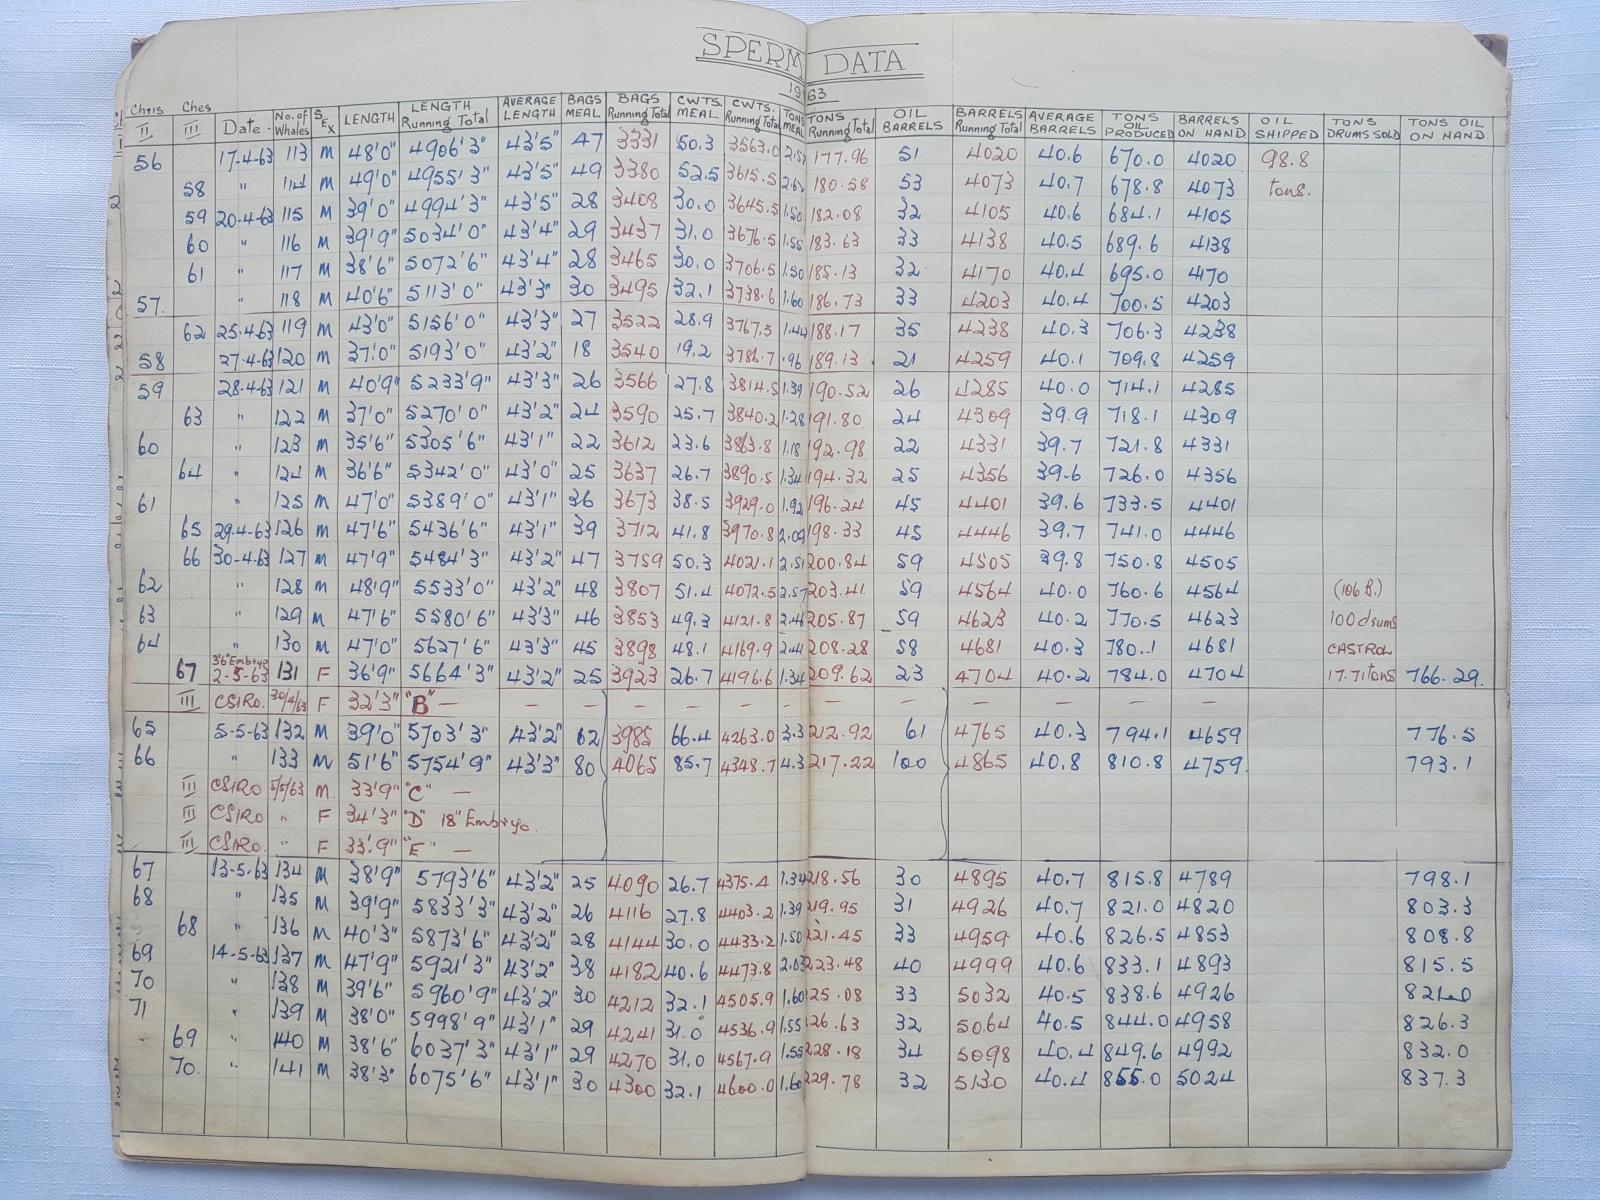 SPERM DATA
1963
Chris II Ches III Date No. of Whales SEX LENGTH LENGTH Running Total AVERAGE LENGTH BAGS MEAL BAGS Running Total CWTS. MEAL CWTS. Running Total TONS MEAL TONS Running Total OIL BARRELS BARRELS Running Total AVERAGE BARRELS TONS OIL PRODUCED BARRELS ON HAND OIL SHIPPED TONS DRUMS SOLD TONS OIL ON HAND.
56 17-4-63 113 M 48'0" 4906'3" 43'5" 47 3331 50.3 3563.0 177.96 51 4020 40.6 670.0 4020 98.8
58 " 114 M 49'0" 4955'3" 43'5" 49 3380 52.5 3615.5 180.58 53 4073 40.7 678.8 4073 tons.
59 20-4-63 115 M 39'0" 4994'3" 43'5" 28 3408 30.0 3645.5 1.50 182.08 32 4105 40.6 684.1 4105
60 " 116 M 39'9" 5034'0" 43'4" 29 3437 31.0 3676.5 1.55 183.63 33 4138 40.5 689.6 4138
61 " 117 M 38'6" 5072'6" 43'4" 28 3465 30.0 3706.5 1.50 185.13 32 4170 40.4 695.0 4170
57. " 118 M 40'6" 5113'0" 43'3" 30 3495 32.1 3738.6 1.60 186.73 33 4203 40.4 700.5 4203
62 25-4-63 119 M 43'0" 5156'0" 43'3" 27 3522 28.9 3767.5 1.44 188.17 35 4238 40.3 706.3 4238
58 27-4-63 120 M 37'0" 5193'0" 43'2" 18 3540 19.2 3786.7 .96 189.13 21 4259 40.1 709.8 4259
59 28-4-63 121 M 40'9" 5233'9" 43'3" 26 3566 27.8 3814.5 1.39 190.52 26 4285 40.0 714.1 4285
63 " 122 M 37'0" 5270'0" 43'2" 24 3590 25.7 3840.2 1.28 191.80 24 4309 39.9 718.1 4309
60 " 123 M 35'6" 5305'6" 43'1" 22 3612 23.6 3863.8 1.18 192.98 22 4331 39.7 721.8 4331
64 " 124 M 36'6" 5342'0" 43'0" 25 3637 26.7 3890.5 1.34 194.32 25 4356 39.6 726.0 4356
61 " 125 M 47'0" 5389'0" 43'1" 36 3673 38.5 3929.0 1.92 196.24 45 4401 39.6 733.5 4401
65 29-4-63 126 M 47'6" 5436'6" 43'1" 39 3712 41.8 3970.8 2.09 198.33 45 4446 39.7 741.0 4446
66 30-4-63 127 M 47'9" 5484'3" 43'2" 47 3759 50.3 4021.1 2.51 200.84 59 4505 39.8 750.8 4505
62 " 128 M 48'9" 5533'0" 43'2" 48 3807 51.4 4072.5 2.57 203.41 59 4564 40.0 760.6 4564 (106 B.)
63 " 129 M 47'6" 5580'6" 43'3" 46 3853 49.3 4121.8 2.46 205.87 59 4623 40.2 770.5 4623 100 drums
64 " 130 M 47'0" 5627'6" 43'3" 45 3898 48.1 4169.9 2.41 208.28 58 4681 40.3 780.1 4681 CASTROL
3'6" Embryo
67 2-5-63 131 F 36'9" 5664'3" 43'2" 25 3923 26.7 4196.6 1.34 209.62 23 4704 40.2 784.0 4704 17.71 tons 766.29.
III CSIRO. 30/4/63 F 32'3" "B" — — — — — — — — — — — —
65 5-5-63 132 M 39'0" 5703'3" 43'2" 62 3985 66.4 4263.0 3.3 212.92 61 4765 40.3 794.1 4659 776.5
66 " 133 M 51'6" 5754'9" 43'3" 80 4065 85.7 4348.7 4.3 217.22 100 4865 40.8 810.8 4759. 793.1
III CSIRO 5/5/63 M. 33'9" "C" —
III CSIRO " F 34'3" "D" 18" Embryo.
III CSIRO. " F 33'9" "E" —
67 13-5-63 134 M 38'9" 5793'6" 43'2" 25 4090 26.7 4375.4 1.34 218.56 30 4895 40.7 815.8 4789 798.1
68 " 135 M 39'9" 5833'3" 43'2" 26 4116 27.8 4403.2 1.39 219.95 31 4926 40.7 821.0 4820 803.3
68 " 136 M 40'3" 5873'6" 43'2" 28 4144 30.0 4433.2 1.50 221.45 33 4959 40.6 826.5 4853 808.8
69 14-5-63 137 M 47'9" 5921'3" 43'2" 38 4182 40.6 4473.8 2.03 223.48 40 4999 40.6 833.1 4893 815.5
70 " 138 M 39'6" 5960'9" 43'2" 30 4212 32.1 4505.9 1.60 25.08 33 5032 40.5 838.6 4926
71 " 139 M 38'0" 5998'9" 43'1" 29 4241 31.0 4536.9 1.55 26.63 32 5064 40.5 844.0 4958 826.3
69 " 140 M 38'6" 6037'3" 43'1" 29 4270 31.0 4567.9 1.55 228.18 34 5098 40.4 849.6 4992 832.0
70. " 141 M 38'3" 6075'6" 43'1" 30 4300 32.1 4600.0 1.60 229.78 32 5130 40.4 855.0 5024 837.3